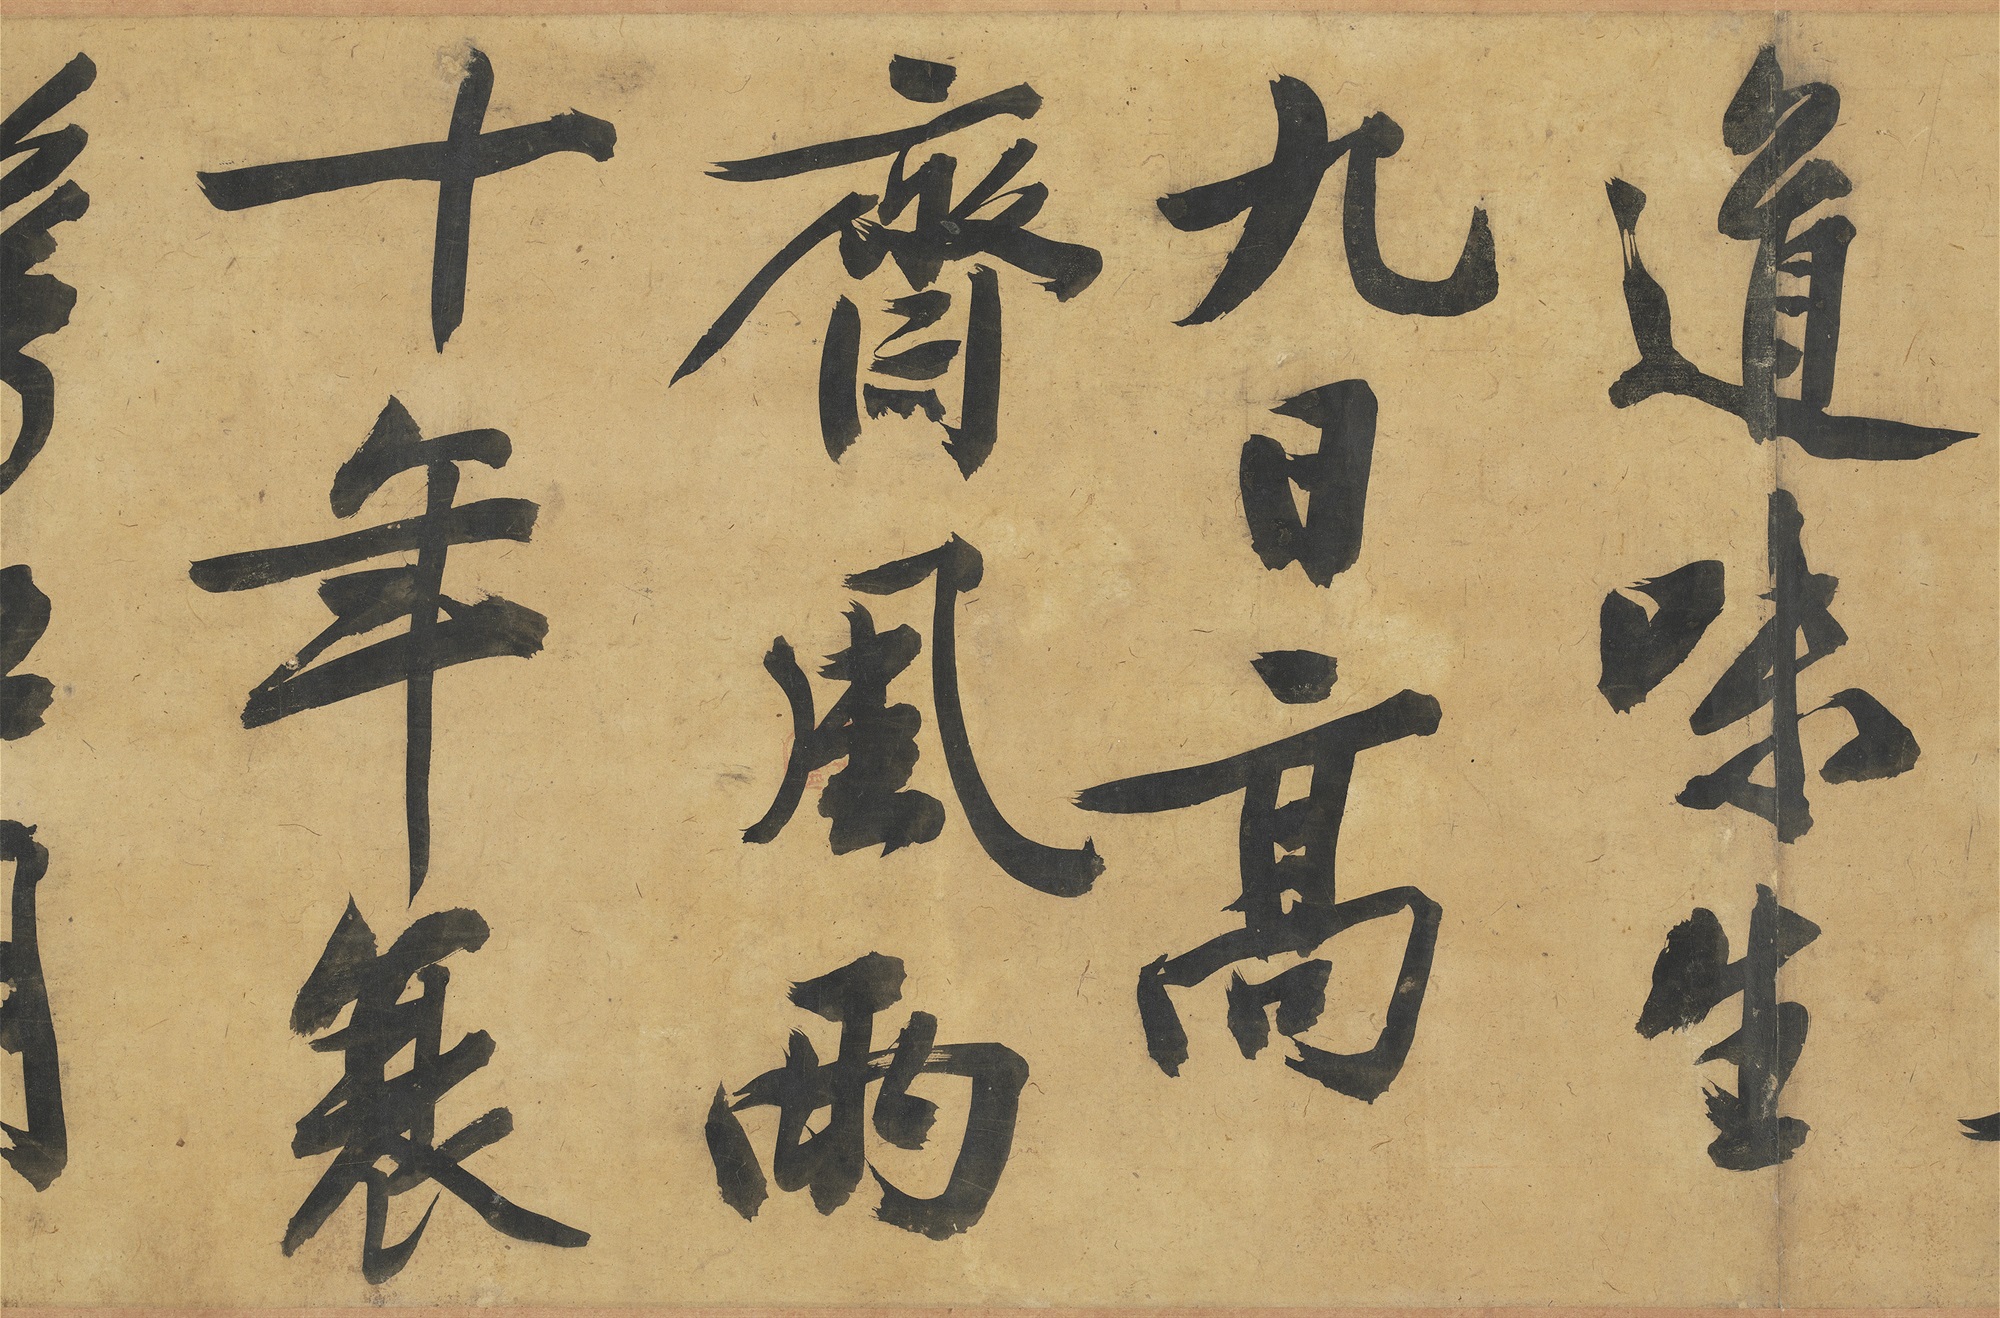 道味生
九日高
齋風雨
十年